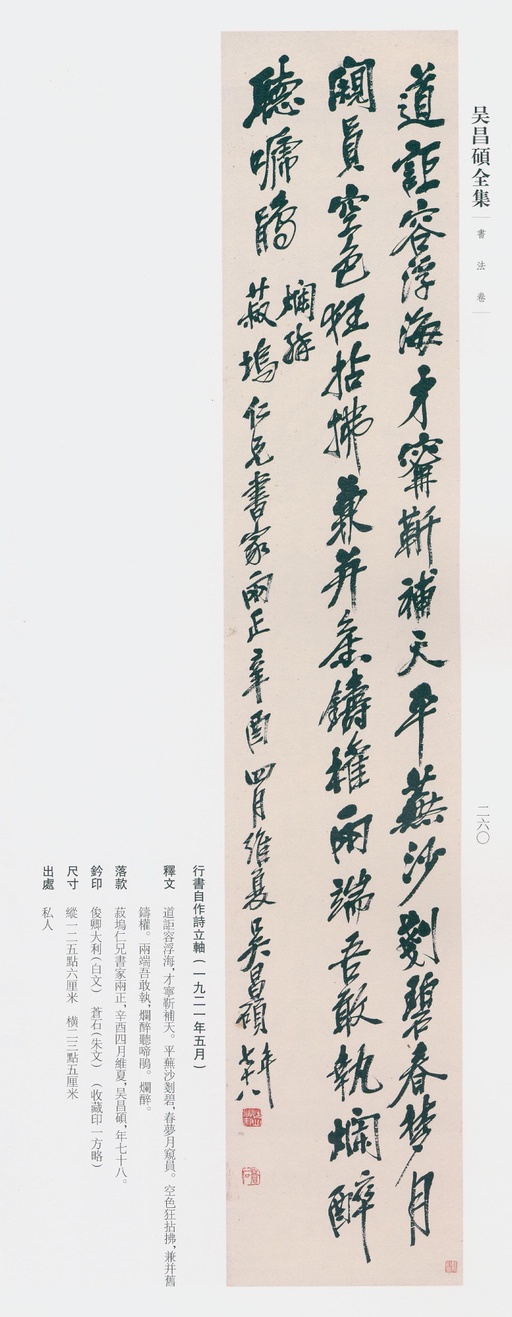 吴昌碩全集
書法卷
二六〇
道詎容浮海才寧靳補天平蕪沙剗碧春夢月
闚員空色狂拈拂兼并鑄權兩端吾敢執爛醉
聽嗁鵑
爛
菽塢仁兄書家兩正辛酉四月維夏吳昌碩年七十八
行書自作詩立軸(一九二一年五月)
釋文 道詎容浮海,才寧靳補天。平蕪沙剗碧,春夢月窺員。空色狂拈拂,兼并舊
鑄權。兩端吾敢執,爛醉聽啼鵑。爛醉。
落款 菽塢仁兄書家兩正,辛酉四月維夏,吴昌碩,年七十八。
鈐印 俊卿大利(白文) 蒼石(朱文) (收藏印一方略)
尺寸 縱一二五點六厘米 橫二三點五厘米
出處 私人